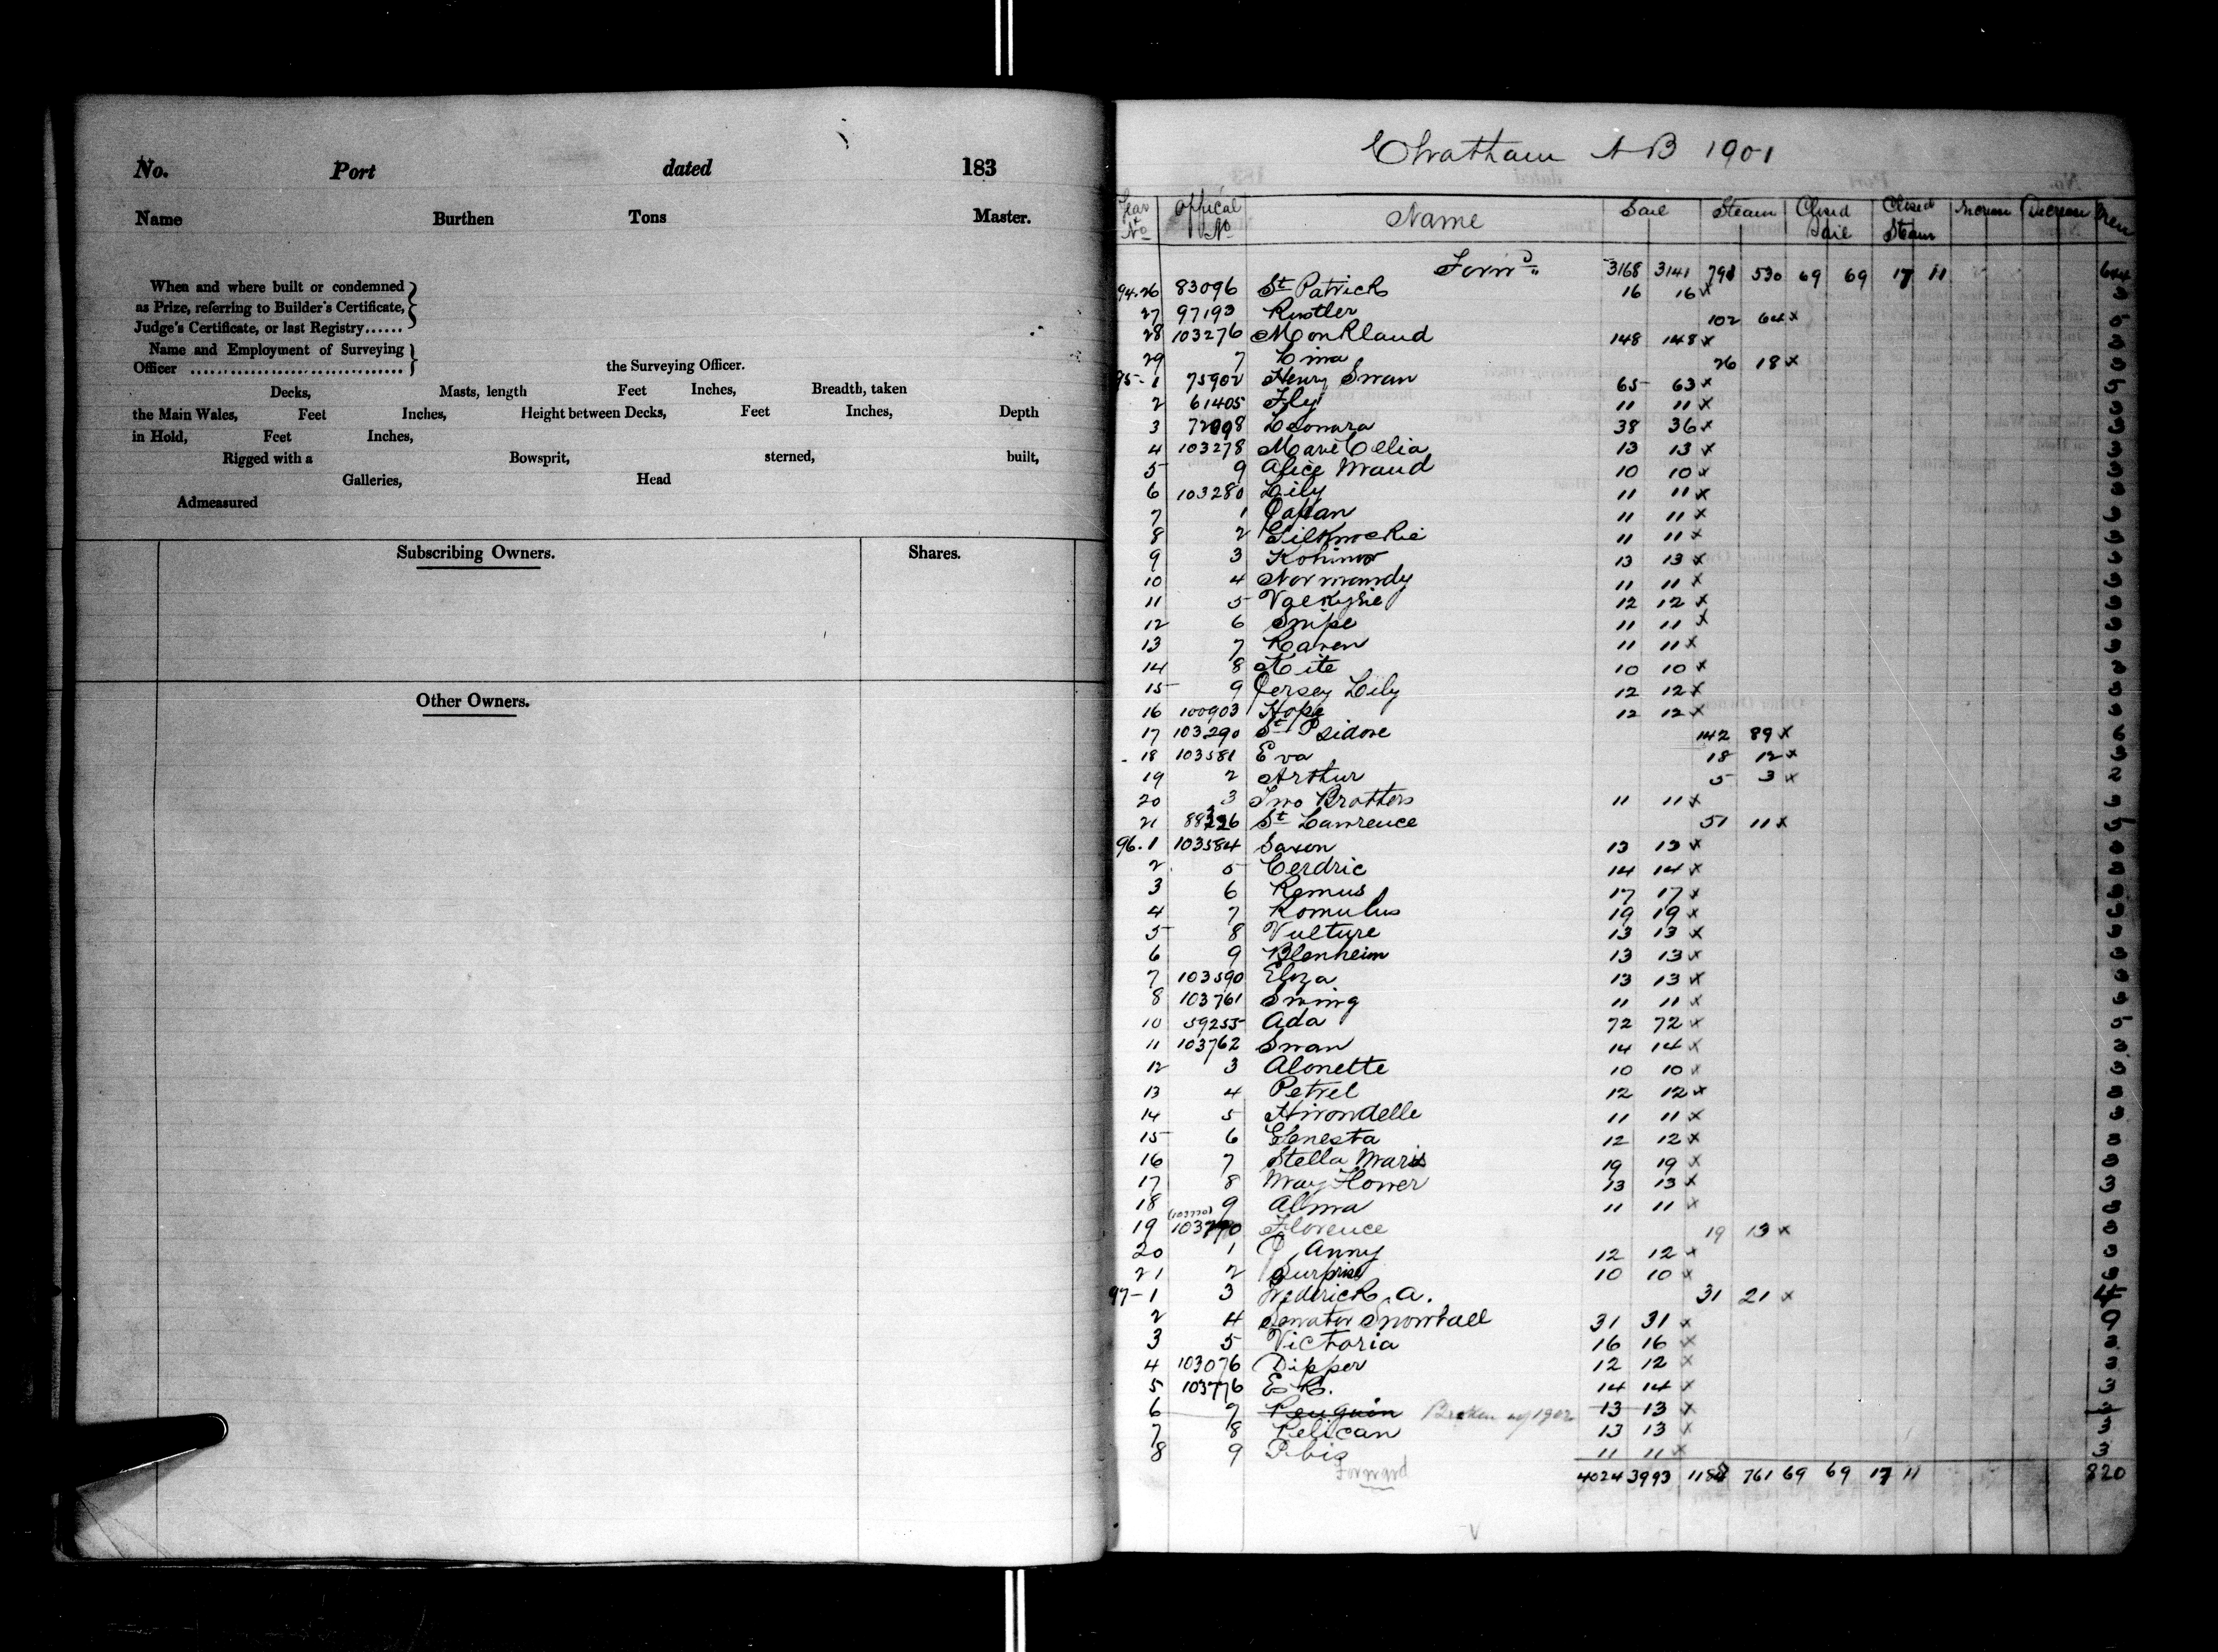 No. Port dated 183
Name Burthen Tons Master.
When and where built or condemned
as Prize, referring to Builder's Certificate,
Judge's Certificate, or last Registry......
Name and Employment of Surveying
Officer ................................ the Surveying Officer.
Decks, Masts, length Feet Inches, Breadth, taken
the Main Wales, Feet Inches, Height between Decks, Feet Inches, Depth
in Hold, Feet Inches,
Rigged with a Bowsprit, sterned, built,
Galleries, Head
Admeasured
Subscribing Owners. Shares.
Other Owners.
Chatham N B 1901
Year & No Offical No Name Sail Steam Closed Sail Closed Steam Increase Decrease Crew
Forwd 3168 3141 798 530 69 69 17 11 644
94.26 83096 St Patrick 16 16 x 3
27 97193 Rustler 102 64 x 5
28 103276 Monkland 148 148 x 3
29 7 Lina 26 18 x
95-1 75902 Henry Swan 65 63 x
2 61405 Fly 11 11 x 3
3 72098 Leonora 38 36 x 3
4 103278 Marie Celia 13 13 x 3
5 9 Alice Maud 10 10 x 3
6 103280 Lily 11 11 x 3
7 1 Japan 11 11 x 3
8 2 Gilknockie 11 11 x 3
9 3 Kohinor 13 13 x 3
10 4 Normandy 11 11 x 3
11 5 Valkyrie 12 12 x 3
12 6 Snipe 11 11 x 3
13 7 Raven 11 11 x 3
14 8 Kite 10 10 x 3
15 9 Jersey Lily 12 12 x 3
16 100903 Hope 12 12 x 3
17 103290 St Isidore 142 89 x 6
18 103581 Eva 18 12 x 3
19 2 Arthur 5 3 x 2
20 3 Two Brothers 11 11 x 3
21 St Lawrence 51 11 x
96.1 103584 Saxon 13 13 x 3
2 5 Cerdric 14 14 x 3
3 6 Remus 17 17 x 3
4 7 Romulus 19 19 x 3
5 8 Vulture 13 13 x 3
6 9 Blenheim 13 13 x 3
7 103590 Eliza 13 13 x 3
8 103761 Swing 11 11 x 3
10 59255 Ada 72 72 x 5
11 103762 Swan 14 14 x 3
12 3 Alonette 10 10 x 3
13 4 Petrel 12 12 x 3
14 5 Hirondelle 11 11 x 3
15 6 Genesta 12 12 x 3
16 7 Stella Maris 19 19 x 3
17 8 May Flower 13 13 x 3
18 9 Alma 11 11 x 3
19 (103770) Florence 19 13 x 3
20 1 J Anny 12 12 x 3
21 2 Surprise 10 10 x 3
97-1 3 Frederick A. 31 21 x 4
2 4 Senator Snowball 31 31 x
3 5 Victoria 16 16 x 3
4 103076 Dipper 12 12 x 3
5 103776 14 14 x 3
6 7 Penguin Broken up 1902 13 13 x 3
7 8 Pelican 13 13 x 3
8 9 Ibis 11 11 x 3
Forward 4024 3993 761 69 69 17 11 820